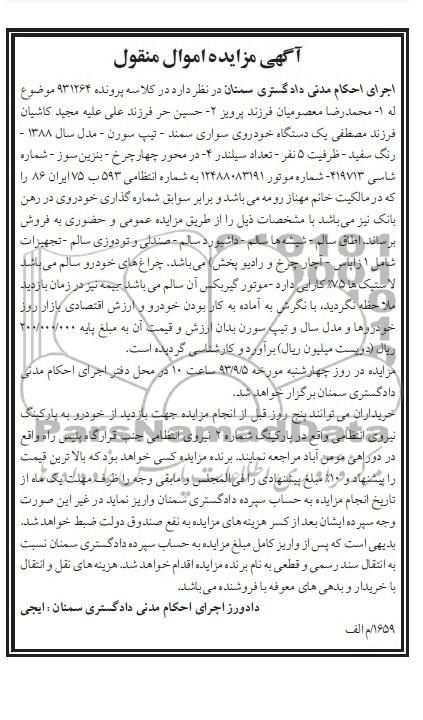 آگهی مزایده اموال منقول
اجرای احکام مدنی دادگستری سمنان در نظر دارد در کلاسه پرونده ۹۳۱۲۶۴ موضوع
له ۱- محمدرضا معصومیان فرزند پرویز ۲- حسین حر فرزند علی علیه مجید کاشیان
فرزند مصطفی یک دستگاه خودروی سواری سمند - تیپ سورن - مدل سال ۱۳۸۸ -
رنگ سفید - ظرفیت ۵ نفر - تعداد سیلندر ۴- در محور چهارچرخ - بنزین سوز - شماره
شاسی ۴۱۹۷۱۳- شماره موتور ۱۲۴۸۸۰۸۳۱۹۱ به شماره انتظامی ۵۹۳ ب ۷۵ ایران ۸۶ را
که در مالکیت خانم مهناز رومه می باشد و برابر سوابق شماره گذاری خودروی در رهن
بانک نیز می باشد با مشخصات ذیل را از طریق مزایده عمومی و حضوری به فروش
برساند. اطاق سالم - شیشه ها سالم - داشبورد سالم - صندلی و تودوزی سالم - تجهیزات
شامل (زاپاس - آچار چرخ و رادیو پخش) می باشد. چراغ های خودرو سالم می باشد
لاستیک ها ۷۵٪ کارایی دارد - موتور گیربکس آن سالم می باشد -بیمه نیز در زمان بازدید
ملاحظه نگردید، با نگرش به آماده به کار بودن خودرو و ارزش اقتصادی بازار روز
خودروها و مدل سال و تیپ سورن بدان ارزش و قیمت آن به مبلغ پایه ۲۰۰/۰۰۰/۰۰۰
ریال (دویست میلیون ریال) برآورد و کارشناسی گردیده است.
مزایده در روز چهارشنبه مورخه ۹۳/۹/۵ ساعت ۱۰ در محل دفتر اجرای احکام مدنی
دادگستری سمنان برگزار خواهد شد.
خریداران می توانند پنج روز قبل از انجام مزایده جهت بازدید از خودرو به پارکینگ
نیروی انتظامی واقع در پارکینگ شماره ۲ نیروی انتظامی جنب قرارگاه پلیس راه واقع
در دوراهی مومن آباد مراجعه نمایند. برنده مزایده کسی خواهد بود که بالا ترین قیمت
را پیشنهاد و ۱۰٪ مبلغ پیشنهادی را فی المجلس و مابقی وجه را ظرف مهلت یک ماه از
تاریخ انجام مزایده به حساب سپرده دادگستری سمنان واریز نماید در غیر این صورت
وجه سپرده ایشان بعد از کسر هزینه های مزایده به نفع صندوق دولت ضبط خواهد شد.
بدیهی است که پس از واریز کامل مبلغ مزایده به حساب سپرده دادگستری سمنان نسبت
به انتقال سند رسمی و قطعی به نام برنده مزایده اقدام خواهد شد. هزینه های نقل و انتقال
با خریدار و بدهی های معوقه با فروشنده می باشد.
دادورز اجرای احکام مدنی دادگستری سمنان : ایجی
۱۶۵۹/م الف
ParsNamadData